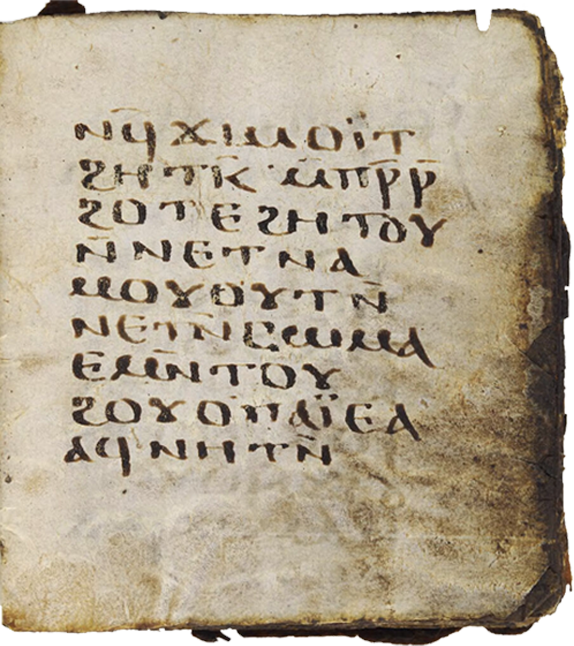 ⲛϥ̄ϫⲓⲙⲟⲓ̈ⲧ
ϩⲏⲧⲕ̄ ⲙⲡⲣ̄ⲣ̄
ϩⲟⲧⲉϩⲏⲧⲟⲩ
ⲛ̄ⲛⲉⲧⲛⲁ
ⲙⲟⲩⲟⲩⲧⲛ̄
ⲛⲉⲧⲛ̄ⲥⲱⲙⲁ
ⲉⲙⲛ̄ⲧⲟⲩ
ϩⲟⲩⲟⲡⲁⲓ̈ⲉⲁ
ⲁϥⲛⲏⲧⲛ̄